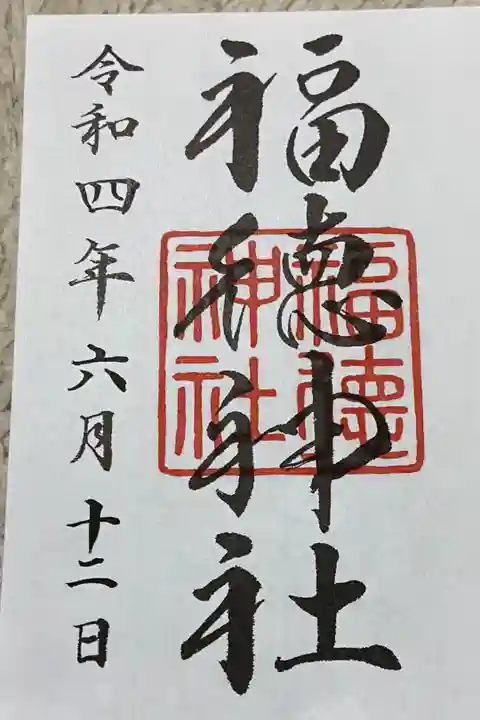 福德神社
福徳神社
令和四年六月十二日